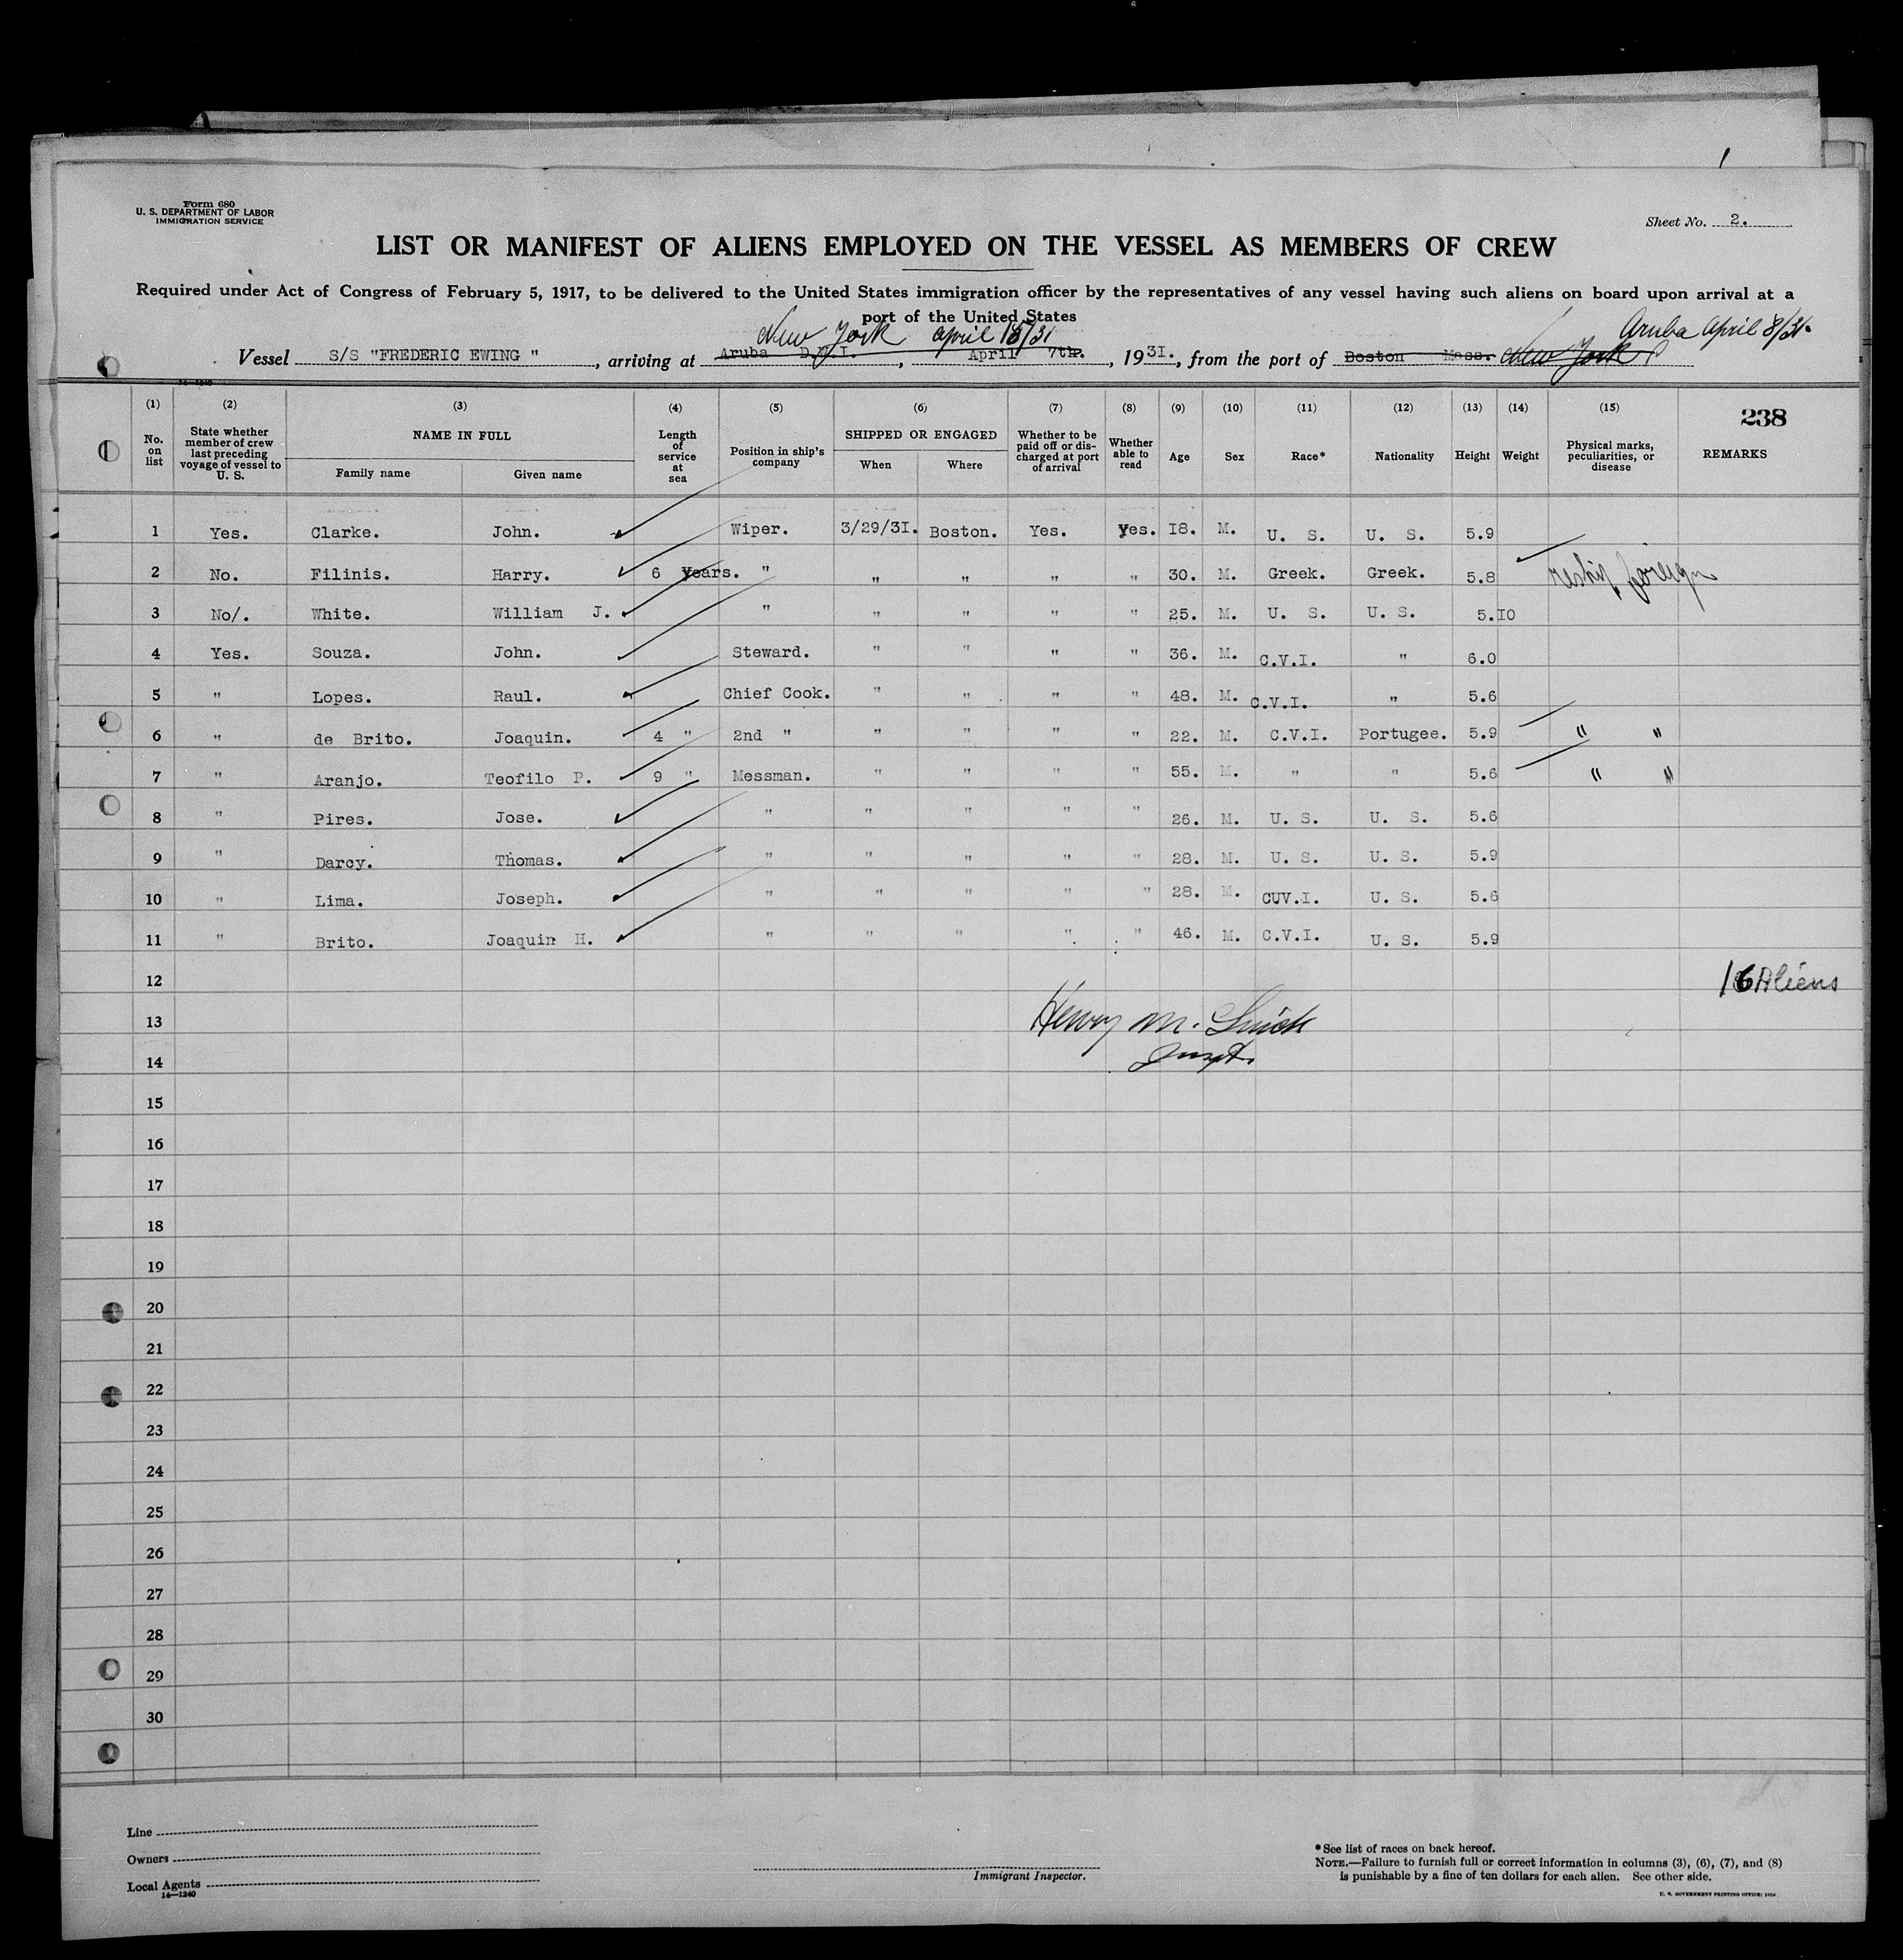 1
Form 680
U. S. DEPARTMENT OF LABOR
IMMIGRATION SERVICE
Sheet No. 2.
LIST OR MANIFEST OF ALIENS EMPLOYED ON THE VESSEL AS MEMBERS OF CREW
Required under Act of Congress of February 5, 1917, to be delivered to the United States immigration officer by the representatives of any vessel having such aliens on board upon arrival at a
port of the United States
New York April 15/31 Aruba April 8/31.
Vessel S/S "FREDERIC EWING ", arriving at Aruba D.W.I., April 7th., 1931., from the port of Boston Mass. New York
14—1240
(1) (2) (3) (4) (5) (6) (7) (8) (9) (10) (11) (12) (13) (14) (15) 238
No. on list State whether member of crew last preceding voyage of vessel to U. S. NAME IN FULL Family name Given name Length of service at sea Position in ship's company SHIPPED OR ENGAGED When Where Whether to be paid off or discharged at port of arrival Whether able to read Age Sex Race* Nationality Height Weight Physical marks, peculiarities, or disease REMARKS
1 Yes. Clarke. John. Wiper. 3/29/31. Boston. Yes. Yes. 18. M. U. S. U. S. 5.9
2 No. Filinis. Harry. 6 Years. " " " " " 30. M. Greek. Greek. 5.8 reship foreign
3 No/. White. William J. " " " " " 25. M. U. S. U. S. 5.10
4 Yes. Souza. John. Steward. " " " " 36. M. C.V.I. " 6.0
5 " Lopes. Raul. Chief Cook. " " " " 48. M. C.V.I. " 5.6
6 " de Brito. Joaquin. 4 " 2nd " " " " " 22. M. C.V.I. Portugee. 5.9 " "
7 " Aranjo. Teofilo P. 9 " Messman. " " " " 55. M. " " 5.6 " "
8 " Pires. Jose. " " " " " 26. M. U. S. U. S. 5.6
9 " Darcy. Thomas. " " " " " 28. M. U. S. U. S. 5.9
10 " Lima. Joseph. " " " " " 28. M. CUV.I. U. S. 5.6
11 " Brito. Joaquin H. " " " " " 46. M. C.V.I. U. S. 5.9
12 16 Aliens
13 Henry M.
14
15
16
17
18
19
20
21
22
23
24
25
26
27
28
29
30
Line
Owners
Local Agents
14—1240
Immigrant Inspector.
*See list of races on back hereof.
NOTE.—Failure to furnish full or correct information in columns (3), (6), (7), and (8)
is punishable by a fine of ten dollars for each alien. See other side.
U. S. GOVERNMENT PRINTING OFFICE: